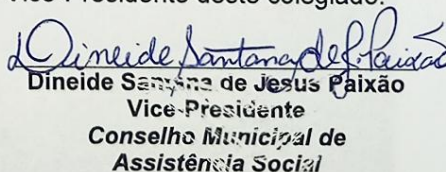 Vice-Presidente deste colegiado.
Dineide Santana de J. Paixão
Dineide Santana de Jesus Paixão
Vice-Presidente
Conselho Municipal de
Assistência Social